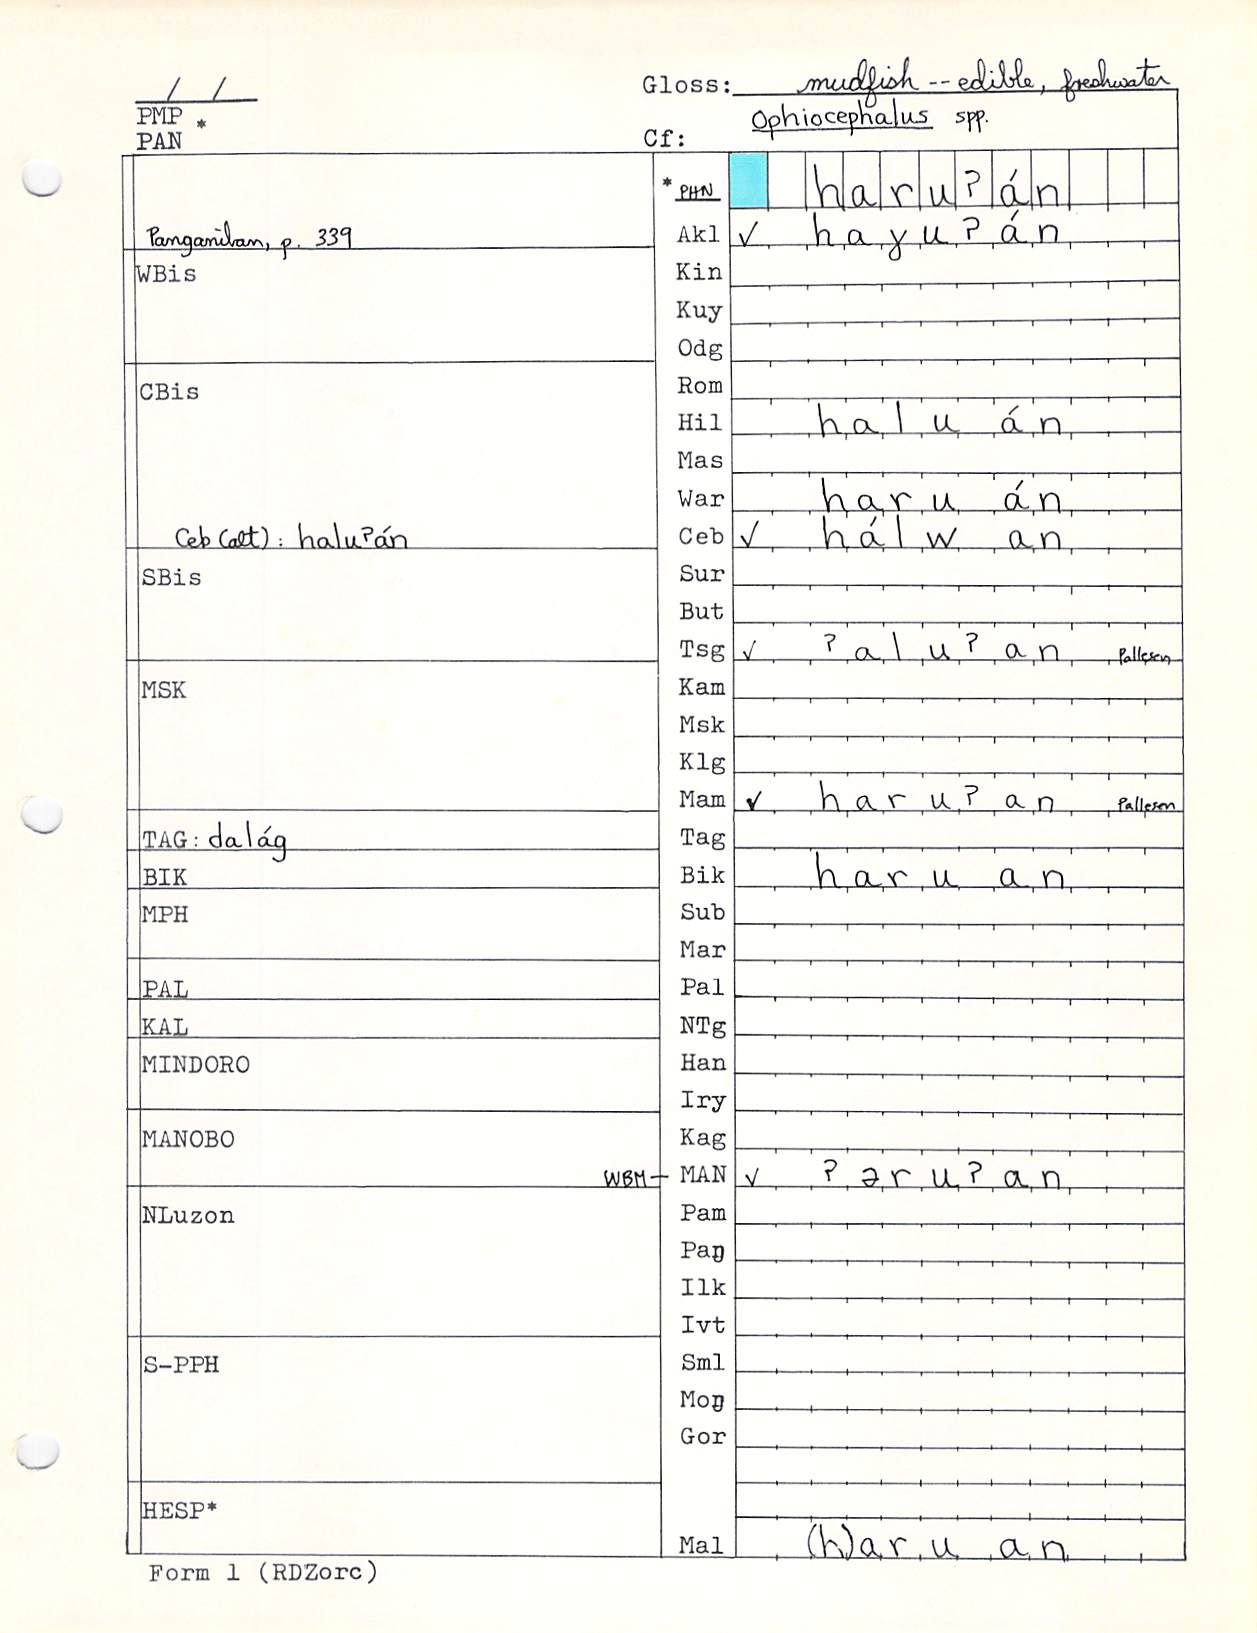 / /
Gloss: mudfish -- edible, freshwater
PMP *
PAN
Ophiocephalus spp.
Cf:
* PHN haruʔán
Panganiban, p. 339
Akl ✓ hayuʔán
WBis
Kin
Kuy
Odg
CBis
Rom
Hil haluán
Mas
War haruán
Ceb (alt): haluʔán
Ceb ✓ hálwan
SBis
Sur
But
Tsg ✓ ʔaluʔan Pallesen
MSK
Kam
Msk
Klg
Mam ✓ haruʔan Pallesen
TAG: dalág
Tag
BIK
Bik haruan
MPH
Sub
Mar
PAL
Pal
KAL
NTg
MINDORO
Han
Iry
MANOBO
Kag
WBM — MAN ✓ ʔəruʔan
NLuzon
Pam
Paŋ
Ilk
Ivt
S-PPH
Sml
Moŋ
Gor
HESP*
Mal (h)aruan
Form 1 (RDZorc)